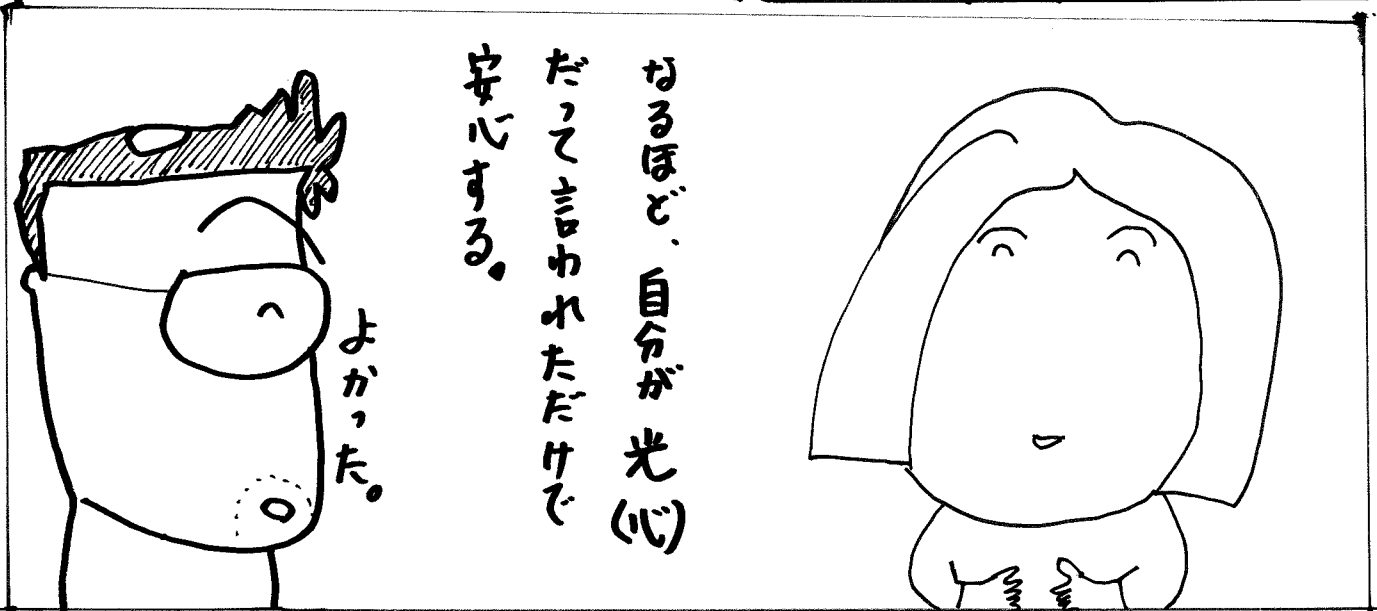 なるほど、自分が光(心)
だって言われただけで
安心する。
よかった。